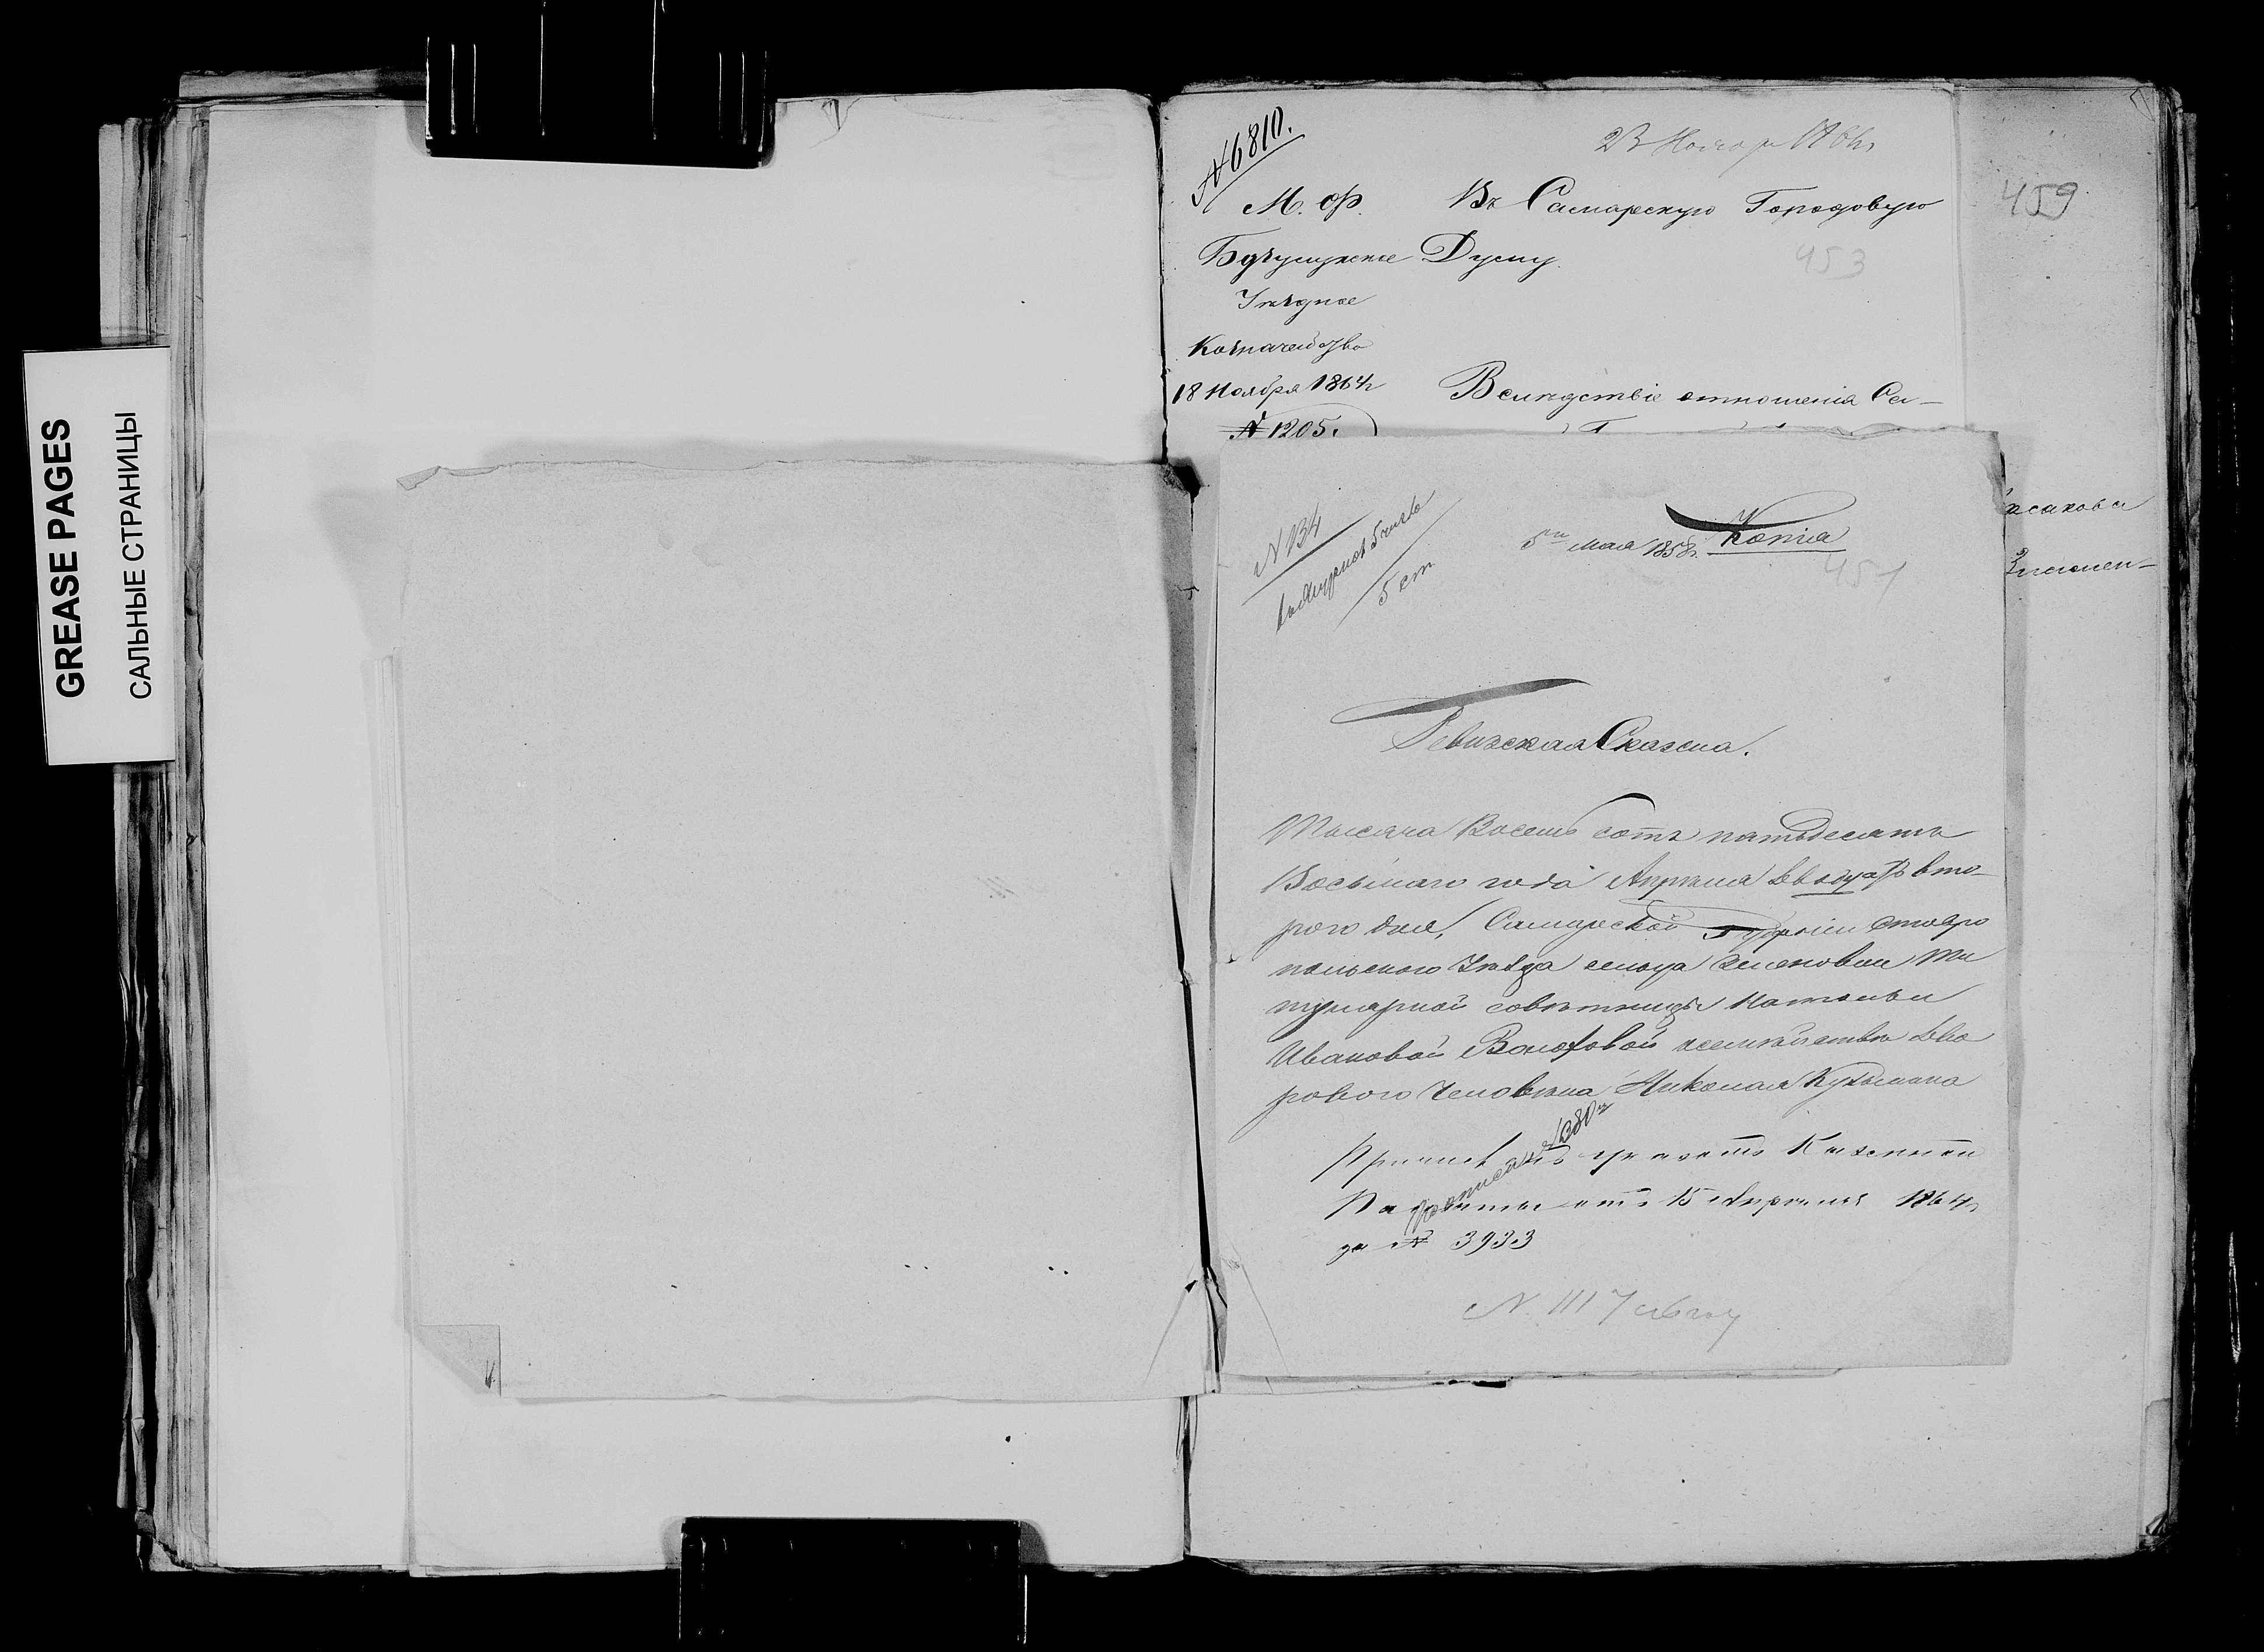 GREASE PAGES
САЛЬНЫЕ СТРАНИЦЫ
№ 6810.
23 Ноября 1864
459
М. Ф.
Въ Самарскую Городовую
Бузулукское
Думу.
453
Уѣздное
Казначейство
18 Ноября 1864
Вслѣдствіе отношенія Са-
№ 1205.
№ 134
5 ст
5го мая 1858г. Копія
451
Ревизская Сказка.
Тысяча Восемь сотъ пятьдесятъ
Восьмаго года Апрѣля двадцать вто-
рого дня, Самарской Губерніи Ставро
польскаго Уѣзда сельца Ти
тулярной совѣтницы Натальи
Ивановой семѣйства Дво
рового Человѣка Николая Кузьмина
Причисленъ указомъ Казенной
Палаты отъ 15 Апрѣля 1864
за № 3933
№ 1117